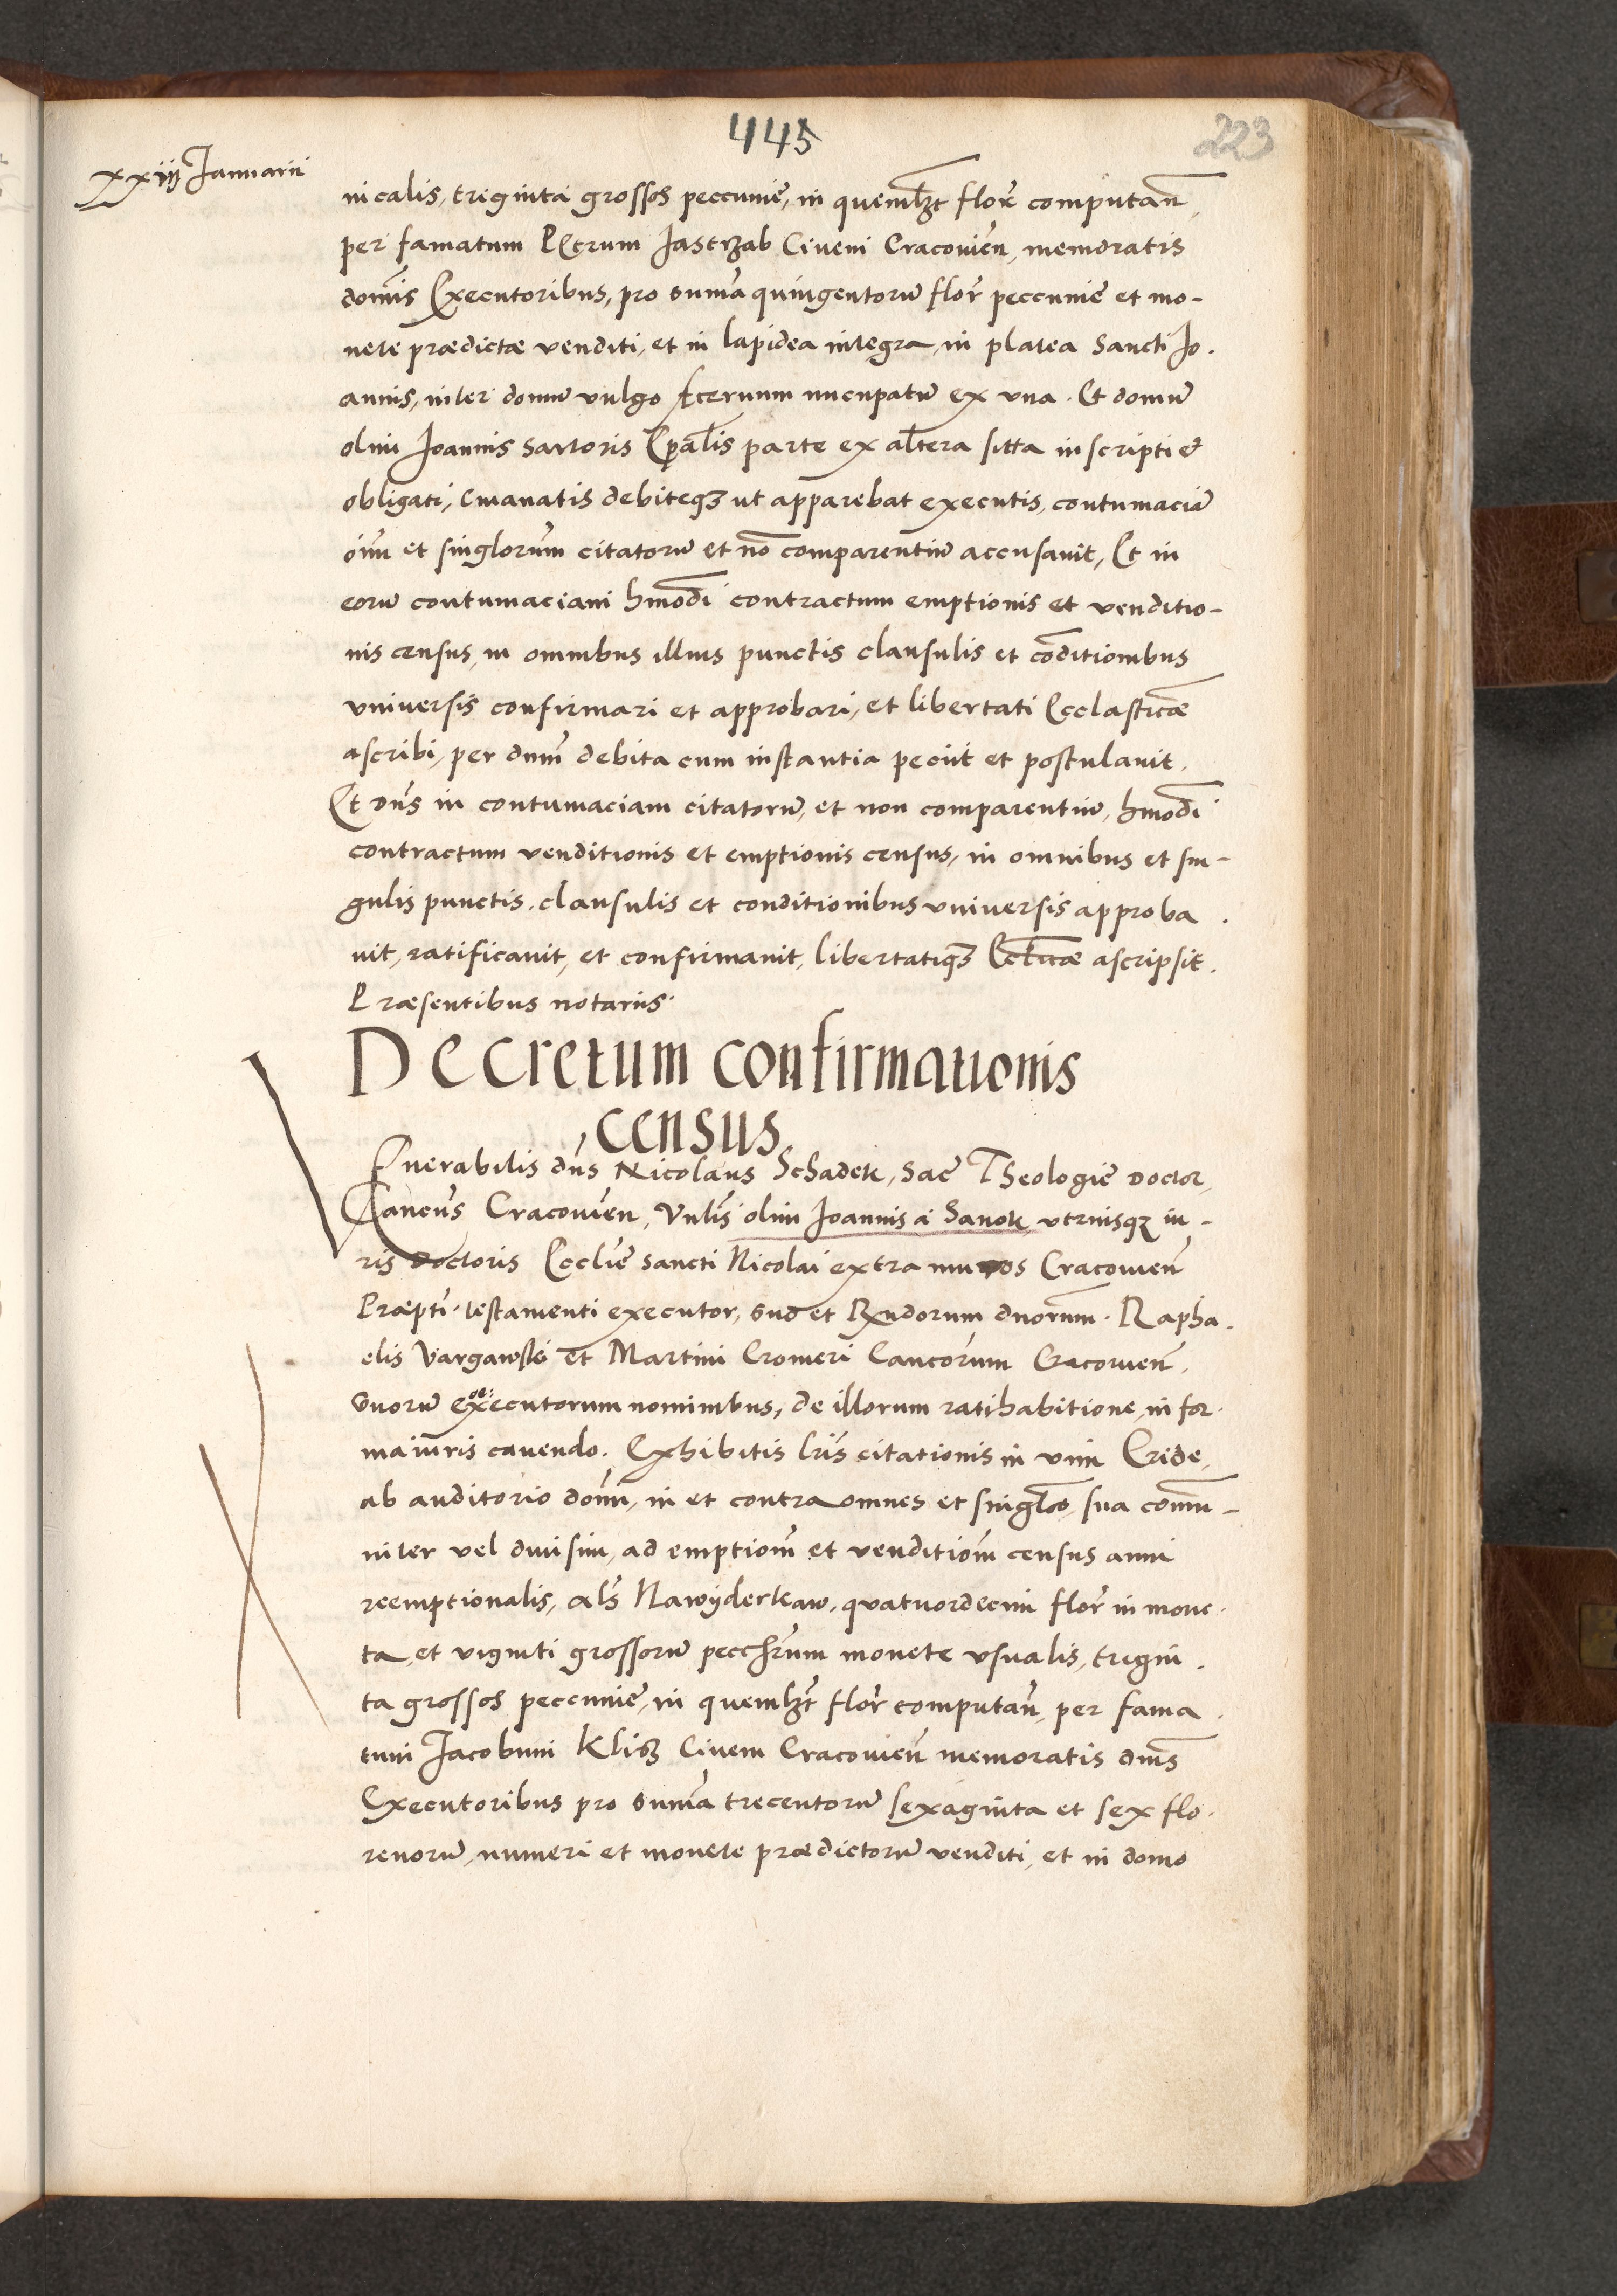 445
223
xxiij Januarii
nicalis, triginta grossos peccunie, in quemlzt flor computan
per famatum Petrum Jastrzab Civem Cracovien, memoratis
domis Executoribus, pro suma quingentoru flor peccunie et mo-
nete prædictæ venditi, et in lapidea integra, in platea Sancti Jo.
annis, inter domu vulgo nucupatu ex una. Et domu
olim Joannis Sartoris parte ex altera sitta inscripti et
obligati, Emanatis debiteqz ut apparebat executis, contumacia
oim et singlorum citatoru et no comparentiu accusavit, Et in
eoru contumaciam hmodi contractum emptionis et venditio-
nis census, in omnibus illius punctis clausulis et conditionibus
universis confirmari et approbari, et libertati Ecclasticæ
ascribi, per dnm debita cum instantia peciit et postulavit.
Et dns in contumaciam citatoru, et non comparentiu, hmodi
contractum venditionis et emptionis census, in omnibus et sin-
gulis punctis. clausulis et conditionibus universis approba.
vit, ratificavit, et confirmavit, libertatiqz Ecclticæ ascripsit.
Præsentibus notariis.
Decretum confirmationis
census
Venerabilis dns Nicolaus Schadek, Sac Theologie Doctor,
Cancus Cracovien, Vnlis olim Joannis a Sanok utriusqz iu-
ris Doctoris Ecclie Sancti Nicolai extra muros Cracovien
Præpti. testamenti executor, suo et Rndorum dnorum. Rapha.
elis Vargawski et Martini Cromeri Cancorum Cracovien,
suoru coexecutorum nominibus, de illorum ratihabitione, in for.
ma iuris cavendo. Exhibitis lris citationis in vim Cride,
ab auditorio domi, in et contra omnes et singlos, sua comu-
niter vel divisim, ad emptiom et venditiom census anni
reemptionalis, als Nawyderkaw, quatuordecim flor in mone.
ta, et viginti grossoru monete usualis, trigin.
ta grossos peccunie, in quemlzt flor computan, per fama.
tum Jacobum Klisz Civem Cracovien memoratis dnis
Executoribus pro suma trecentoru sexaginta et sex flo.
renoru, numeri et monete prædictoru venditi, et in domo